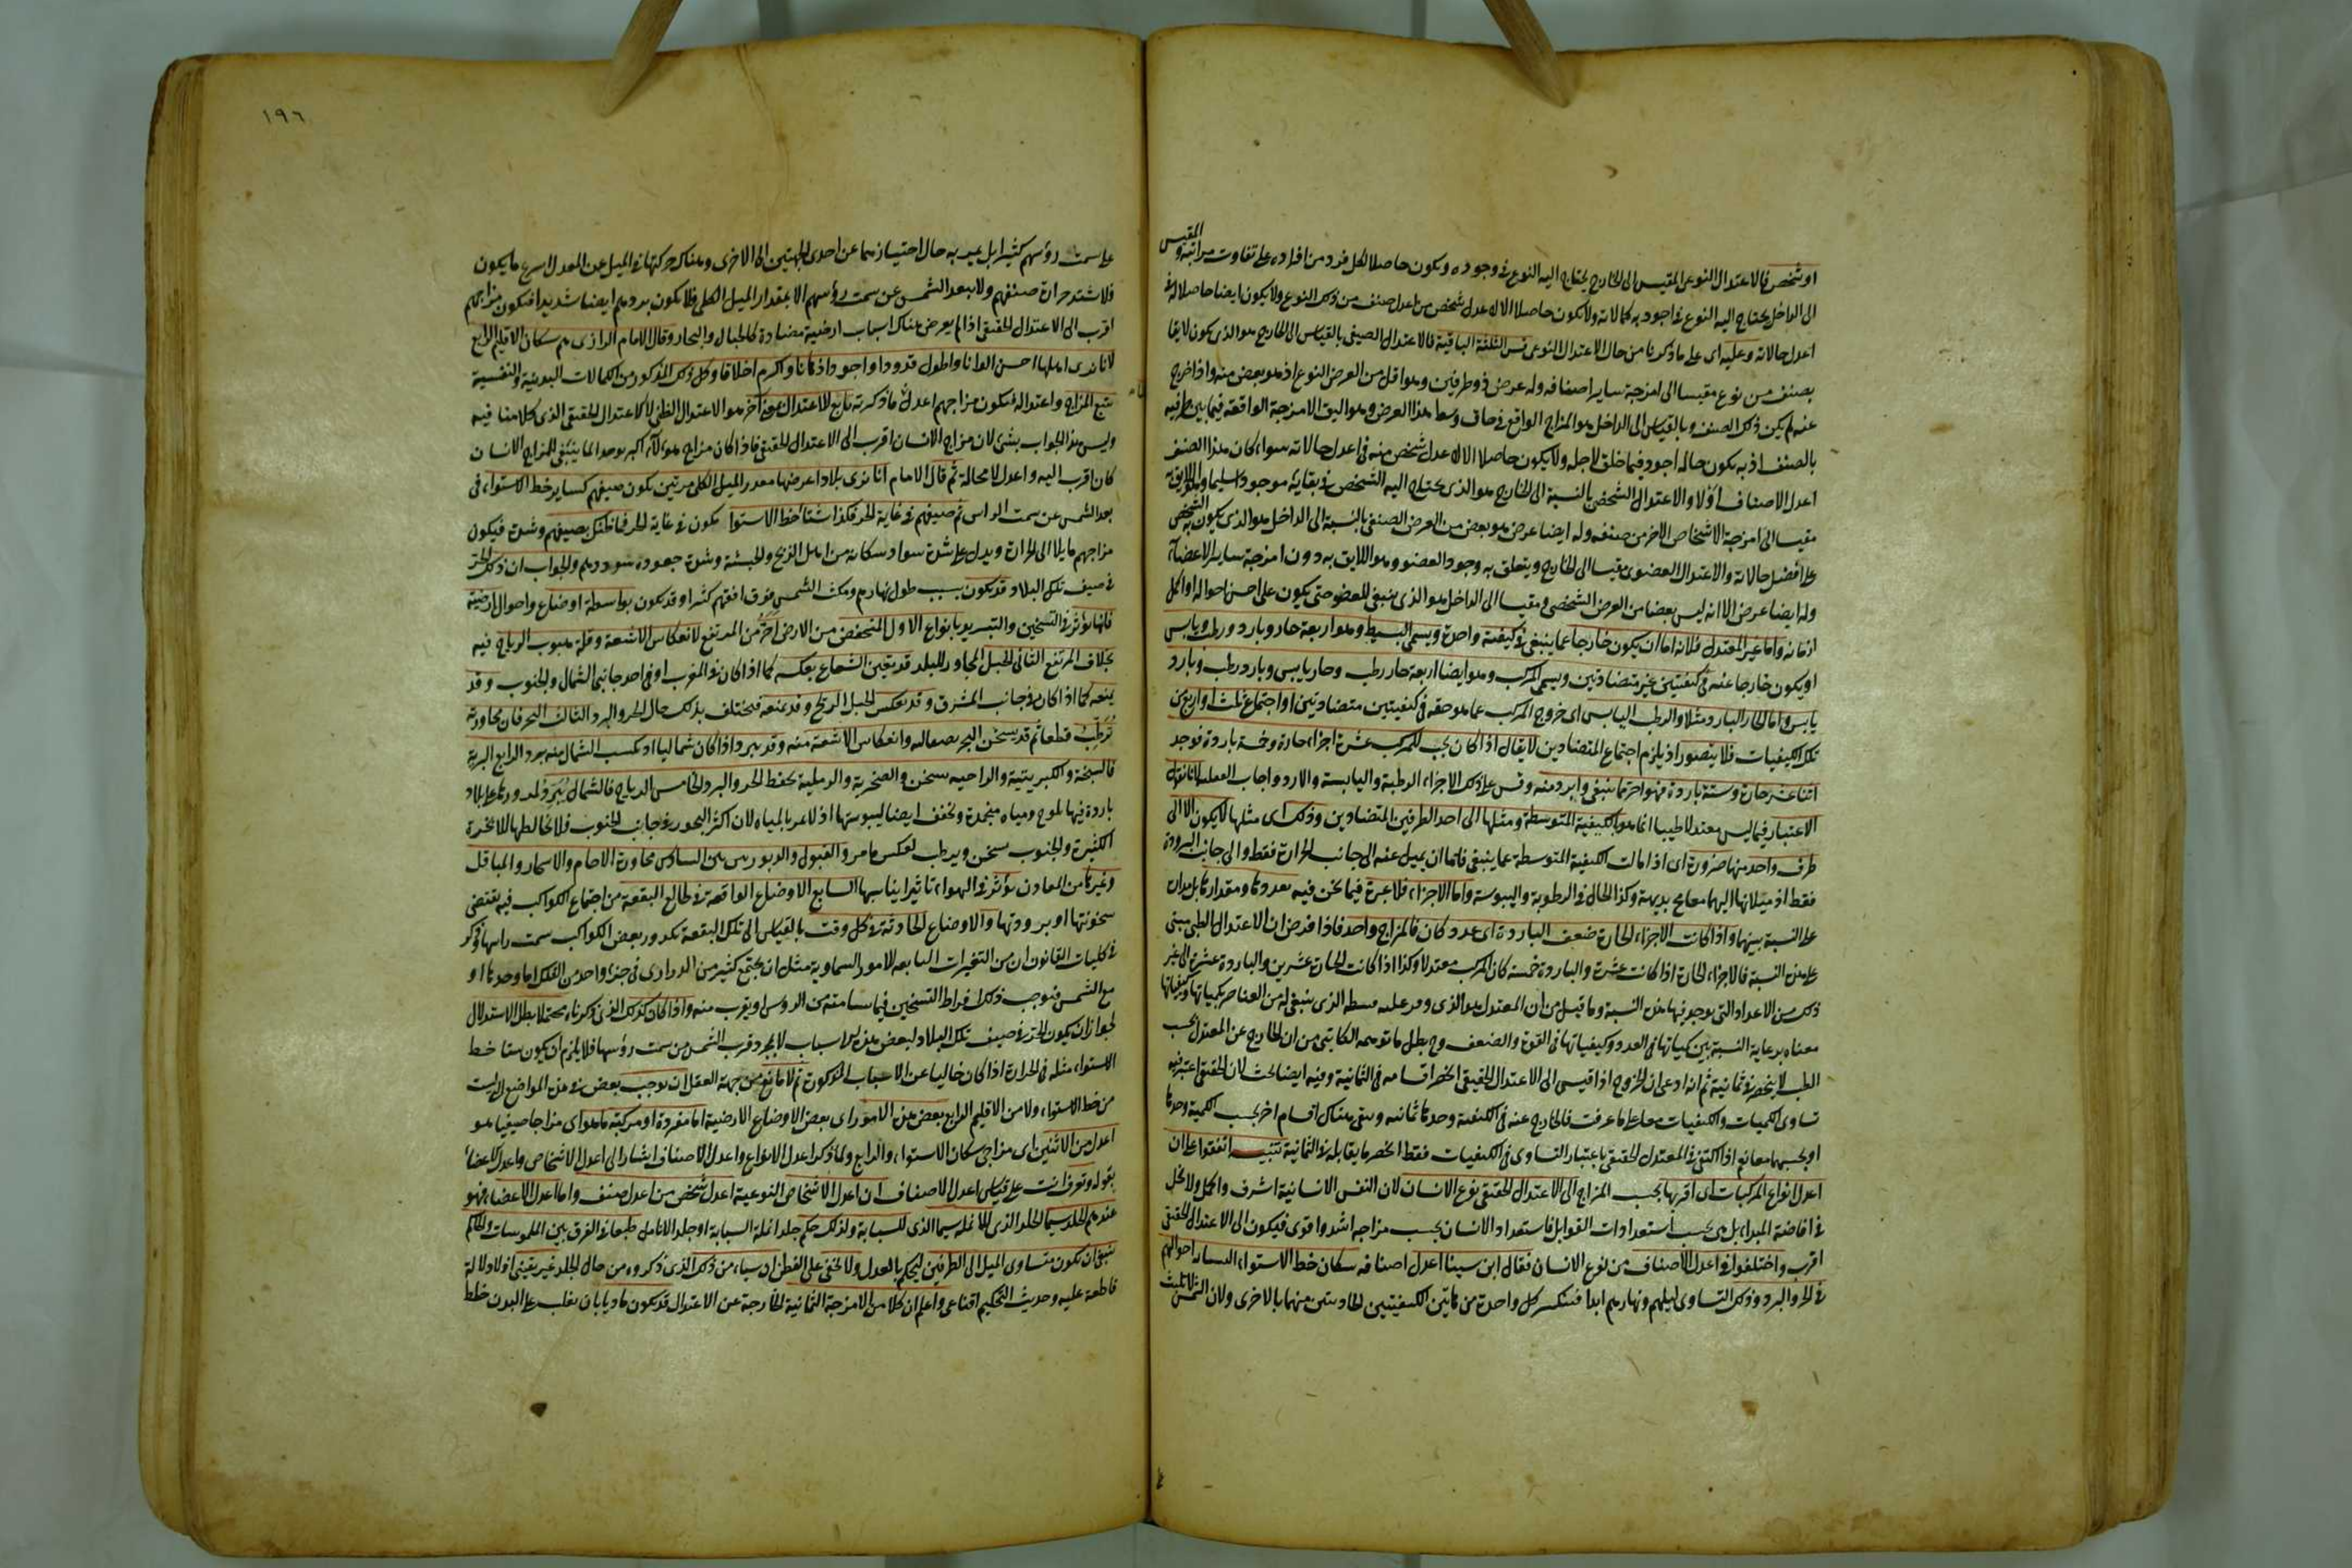 او شخص فالاعتدال النوعى المقيس الى الخارج يحتاج اليه النوع فى وجوده ويكون حاصلا لكل فرد من افراده على تفاوت مراتبه والمقيس
الى الداخل يحتاج اليه النوع فى اجود به كمالاته ولا يكون حاصلا الا لاعدل شخص من اعدل صنف من ذلك النوع ولا يكون ايضا حاصلا له فى
اعدل حالاته وعليه اى على ما ذكرنا من حال الاعتدال النوعى قس الثلثة الباقية فالاعتدال الصنفى بالقياس الى الخارج هو الذى يكون لايقا
بصنف من نوع مقيسا الى امزجة ساير اصنافه وله عرض ذو طرفين وهو اقل من العرض النوع اذ هو بعض منه واذا خرج
عنه لم يكن ذلك الصنف وبالقياس الى الداخل هو المزاج الواقع فى حاق وسط هذا العرض وهو اليق الامزجة الواقعة فيما بين طرفيه
بالصنف اذ به يكون حاله اجود فيما خلق لاجله ولا يكون حاصلا الا لاعدل شخص منه فى اعدل حالاته سواء كان هذا الصنف
اعدل الاصناف اولا والاعتدال الشخصى بالنسبة الى الخارج هو الذى يحتاج اليه الشخص فى بقائه موجودا سليما وهو اللايق به
مقيسا الى امزجة الاشخاص الاخر من صنفه وله ايضا عرض هو بعض من العرض الصنفى بالنسبة الى الداخل هو الذى يكون به الشخص
على افضل حالاته والاعتدال العضوى مقيسا الى الخارج ويتعلق به وجود العضو وهو اللايق به دون امزجة ساير الاعضاء
وله ايضا عرض الا انه ليس بعضا من العرض الشخصى ومقيسا الى الداخل هو الذى ينبغى للعضو حتى يكون على احسن احواله او اكمل
ازمانه واما غير المعتدل فلانه اما ان يكون خارجا عما ينبغى فى كيفية واحدة ويسمى البسيط وهو اربعة حار وبارد ورطب ويابس
او يكون خارجا عنه فى كيفيتين غير متضادتين ويسمى المركب وهو ايضا اربعة حار رطب وحار يابس وبارد رطب وبارد
يابس واما الحار البارد مثلا والرطب اليابس اى خروج المركب عما هو حقه فى كيفيتين متضادتين او اجتماع ثلث او اربع من
تلك الكيفيات فلا يتصور اذ يلزم اجتماع المتضادين لا يقال اذا كان يجب للمركب عشرة اجزاء حارة وخمسة باردة فوجد
اثنا عشر حارة وستة باردة فهو احر مما ينبغى وابرد منه وقس على ذلك الاجزاء الرطبة واليابسة لانا نقول
الاعتبار فيما ليس معتدلا طبيبا انما هو بالكيفية المتوسطة وميلها الى احد الطرفين المتضادين وذلك اى ميلها لا يكون الا الى
طرف واحد منها ضرورة اى اذا مالت الكيفية المتوسطة عما ينبغى فاما ان يميل عنه الى جانب الحرارة فقط والى جانب البرودة
فقط اذ ميلانها اليهما معا محال بديهة وكذا الحال فى الرطوبة واليبوسة واما الاجزاء فلا عبرة فيما نحن فيه بعددها ومقدارها بل مدار
على النسبة بينهما واذا كانت الاجزاء الحارة ضعف الباردة اى عدد كان فالمزاج واحد فاذا فرض ان الاعتدال الطبى مبنى
على هذه النسبة فالاجزاء الحارة اذا كانت عشرة والباردة خمسة كان المركب معتدلا وكذا اذا كانت الحارة عشرين والباردة عشرة الى غير
ذلك من الاعداد التى يوجد فيها هذه النسبة وما قيل من ان المعتدل هو الذى وفر عليه قسطه الذى ينبغى له من العناصر بكمياتها وكيفياتها
معناه برعاية النسبة بين كمياتها فى العدد وكيفياتها فى القوة والضعف وح بطل ما توهمه الكاتبى من ان الخارج عن المعتدل بحسب
الطب لا ينحصر فى ثمانية ثم انه ادعى ان الخروج اذا قيس الى الاعتدال الحقيقى انحصر اقسامه فى الثمانية وفيه ايضا بحث لان الحقيقى اعتبر فيه
تساوى الكميات والكيفيات معا على ما عرفت فالخارج عنه فى الكيفية وحدها ثمانية وبقى هناك اقسام اخر بحسب الكمية وحدها
او بحسبهما معا نعم اذا اكتفى فى المعتدل الحقيقى باعتبار التساوى فى الكيفيات فقط انحصر ما يقابله فى الثمانية تنبيه اتفقوا على ان
اعدل انواع المركبات اى اقربها بحسب المزاج الى الاعتدال الحقيقى نوع الانسان لان النفس الانسانية اشرف واكمل ولا بخل
فى افاضة المبداء بل هى بحسب استعدادات القوابل فاستعداد الانسان بحسب مزاجه اشد واقوى فيكون الى الاعتدال الحقيقى
اقرب واختلفوا فى اعدل الاصناف من نوع الانسان فقال ابن سينا اعدل اصنافه سكان خط الاستواء احوالهم
فى الحر والبرد وذلك لتساوى ليلهم ونهارهم ابدا فتنكسر كل واحدة من هاتين الكيفيتين الحادثتين منهما بالاخرى ولان الشمس لا تلبث
١٩٦
على سمت رؤسهم كثيرا بل عبر به حال اجتيازها عن احدى الجهتين الى الاخرى وهناك حركتها فى الميل عن المعدل اسرع ما يكون
فلا تشتد حرارة صيفهم ولا يبعد الشمس عن سمت رؤسهم الا بمقدار الميل الكلى فلا يكون بردهم ايضا شديدا فيكون مزاجهم
اقرب الى الاعتدال الحقيقى اذا لم يعرض هناك اسباب ارضية مضادة كالجبال والبحار وقال الامام الرازى هم سكان الاقليم الرابع
لانا نرى اهلها احسن الوانا واطول قدودا واجود اذهانا واكرم اخلاقا وكل ذلك المذكور من الكمالات البدنية والنفسية
يتبع المزاج واعتداله فيكون مزاجهم اعدل ما ذكرته تابع للاعتدال اخر هو الاعتدال الطبى لا للاعتدال الحقيقى الذى كلامنا فيه
وليس هذا الجواب بشئ لان مزاج الانسان اقرب الى الاعتدال الحقيقى فاذا كان مزاج هولاء اكبر توحدا لما ينبغى للمزاج الانسان
كان اقرب اليه واعدل لا محالة ثم قال الامام انا نرى بلادا عرضها مقدار الميل الكلى مرتين يكون صيفهم كساير خط الاستواء فى
بعد الشمس عن سمت الراس ثم صيفهم فى غاية الحر فكذا شتاء خط الاستواء يكون فى غاية الحر فما ظنك بصيفهم وشدته فيكون
مزاجهم مايلا الى الحرارة ويدل على شدة سواد سكانه من اهل الزنج والحبشة وشدة جعودة شعورهم والجواب ان ذلك الحر
فى صيف تلك البلاد قد يكون بسبب طول نهارهم ومكث الشمس فوق افقهم كثيرا وقد يكون بواسطة اوضاع واحوال ارضية
فانها يؤثر فى التسخين والتبريد بانواع الاول المنخفض من الارض احر من المرتفع لانعكاس الاشعة وقلة هبوب الرياح فيه
بخلاف المرتفع الثانى الجبل المجاور للبلد قد يعين الشعاع بعكسه كما اذا كان فى المغرب او فى احد جانبى الشمال والجنوب وقد
يمنعه كما اذا كان فى جانب المشرق وقد يعكس الجبل الريح وقد يمنعه فيختلف بذلك حال الحر والبرد الثالث البحر فان مجاورته
ترطب قطعا ثم قد يسخن البحر بصقاله وانعكاس الاشعة منه وقد يبرد اذا كان شماليا الرابع التربة
فالسبخة والكبريتية يسخن والصخرية والرملية يحفظ الحر والبرد الخامس الرياح فالشمال يبرد على بلاد
باردة فيها ثلوج ومياه منجمدة وتجفف ايضا ليبوستها اذ لا تمر بالمياه لان اكثر البحور فى جانب الجنوب فلا يخالطها الابخرة
الكثيرة والجنوب يسخن ويرطب لعكس ما مر والقبول والدبور بين بين السادس مجاورة الاجام والاشجار والمباقل
وغيرها من المعادن يؤثر فى الهواء تاثيرا يناسبها السابع الاوضاع الواقعة فى طالع البقعة من اجتماع الكواكب فيه يقتضى
سخونتها او برودتها والاوضاع الحادثة فى كل وقت بالقياس الى تلك البقعة كدور بعض الكواكب سمت راسها وذكر
فى كليات القانون ان من التغيرات التابعة للامور السماوية مثل ان يجتمع كثير من الدرارى فى جزء واحد من الفلك اما وحدها او
مع الشمس فيوجب ذلك افراط التسخين فيما يسامته من الرؤس او يقرب منه واذا كان كذلك الذى ذكرناه محتملا بطل الاستدلال
لجواز ان يكون الحر فى صيف تلك البلاد لبعض هذه الاسباب لا لمجرد قرب الشمس من سمت رؤسها فلا يلزم ان يكون شتاء خط
الاستواء مثله فى الحرارة اذا كان خاليا عن الاسباب المذكورة ثم لا مانع من جهة العقل ان يوجب بعض هذه المواضع التى ليست
من خط الاستواء ولا من الاقليم الرابع بعض هذه الامور اى بعض الاوضاع الارضية اما مفردة او مركبة ما هو اى مزاجا صيفيا هو
اعدل من الاثنين اى مزاجى سكان الاستواء والرابع ولما ذكر اعدل الانواع واعدل الاصناف اشار الى اعدل الاشخاص واعدل الاعضاء
بقوله وتعرف انت على قياس اعدل الاصناف ان اعدل الاشخاص النوعية اعدل شخص من اعدل صنف واما اعدل الاعضاء فهو
عندهم الجلد سيما الجلد الذى للانملة سيما الذى للسبابة ولذلك حكم جلد انملة السبابة او جلد الانامل طبعا فى الفرق بين الملموسات والحاكم
ينبغى ان يكون متساوى الميل الى الطرفين ليحكم بالعدل ولا يخفى على الفطن ان سياه من ذلك الذى ذكروه من حال الجلد غير يقينى اذ لا دلالة
قاطعة عليه وحديث التحكيم اقناعى واعلم ان كلا من الامزجة الثمانية الخارجة عن الاعتدال قد يكون ماديا بان يغلب على البدن خلط